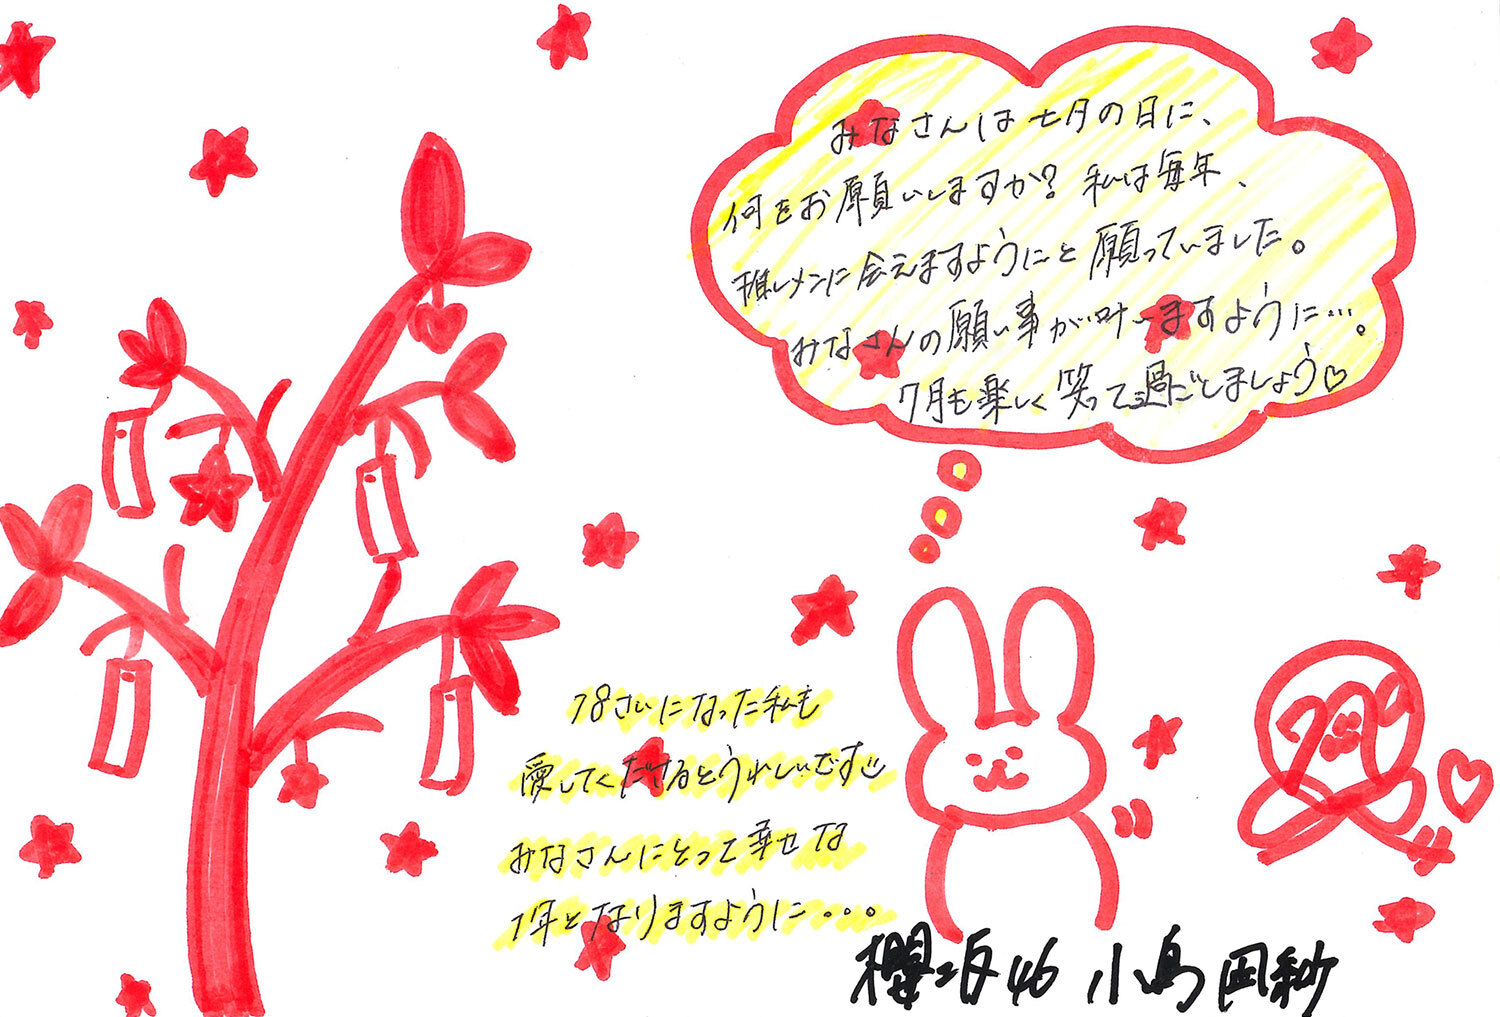 みなさんは七月の日に、
何をお願いしますか？ 私は毎年、
推しメンに会えますようにと願っていました。
みなさんの願い事が叶いますように…。
7月も楽しく笑って過ごしましょう♡
18さいになった私も
愛してくださるとうれしいです
みなさんにとって幸せな
1年となりますように・・・。
櫻坂46 小島凪紗